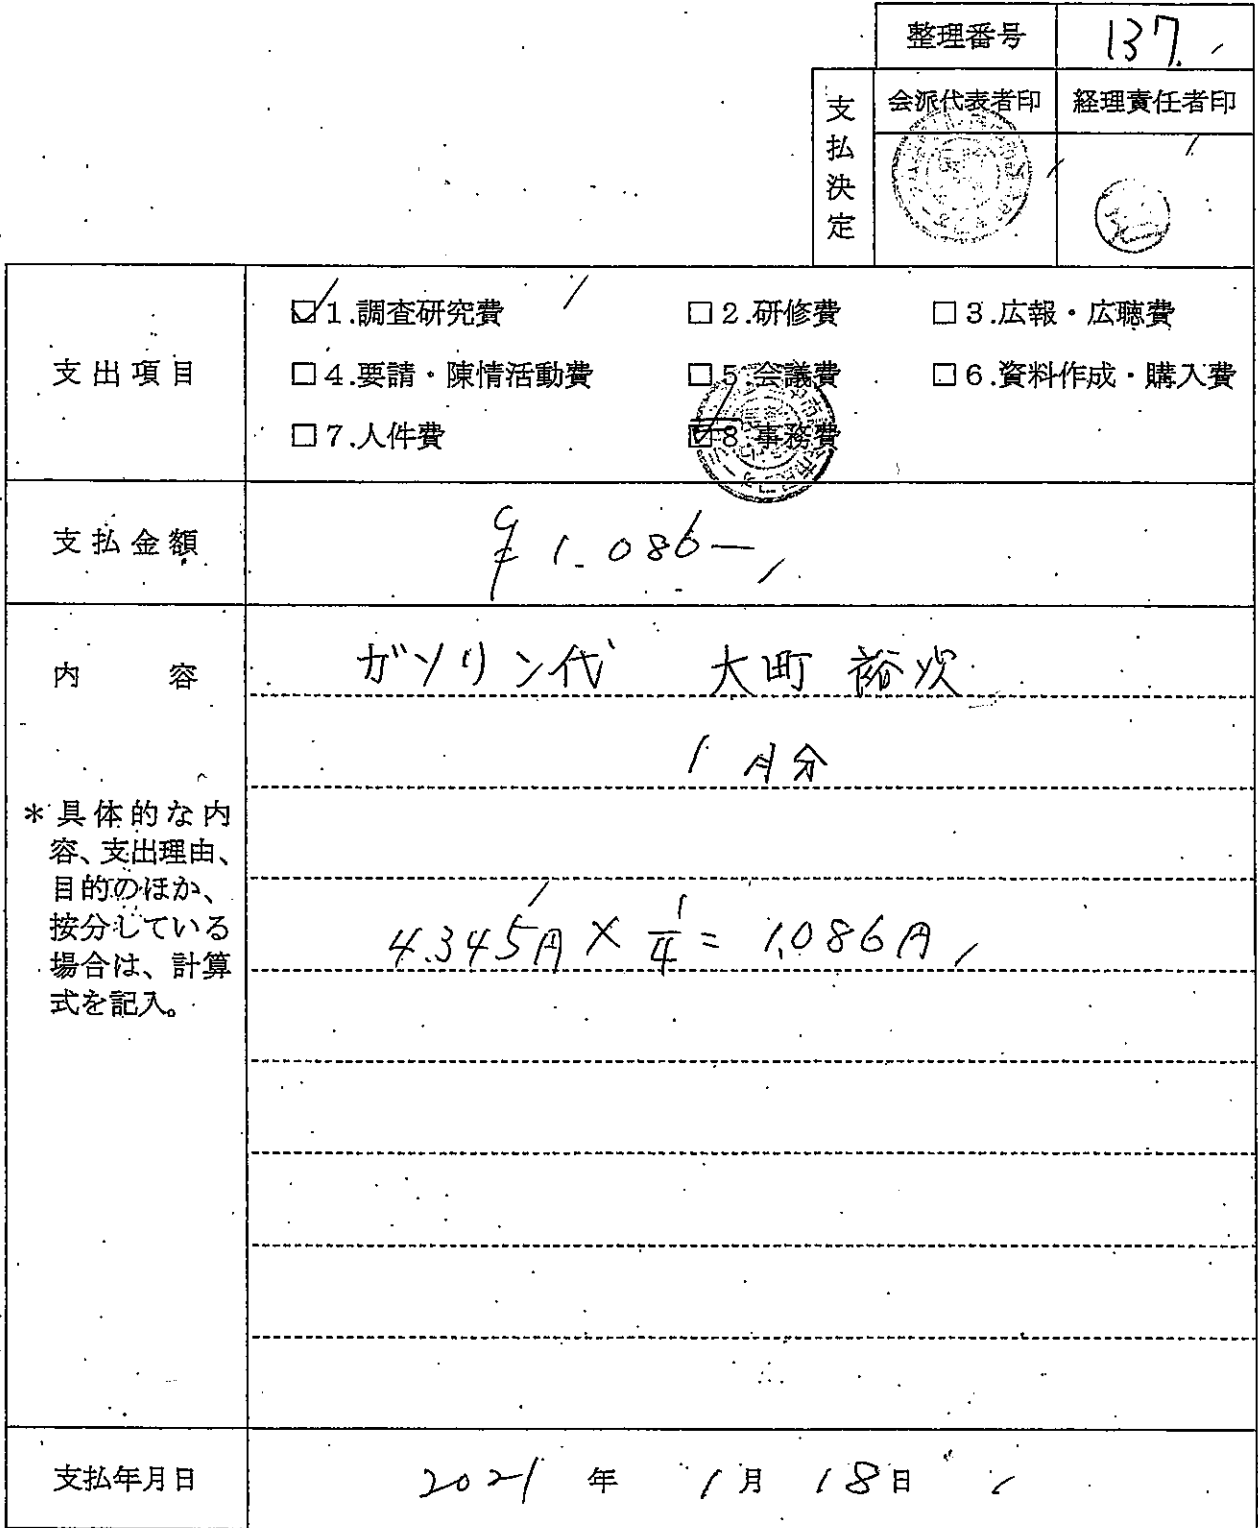 整理番号 137.
支払決定
会派代表者印 経理責任者印
支出項目
☑1.調査研究費 □2.研修費 □3.広報・広聴費
□4.要請・陳情活動費 □5.会議費 □6.資料作成・購入費
□7.人件費 ☑8.事務費
支払金額 ¥1.086―
内容 ガソリン代 大町 裕次
1月分
*具体的な内
容、支出理由、
目的のほか、
按分している
場合は、計算
式を記入。
4.345円 × 1/4 = 1.086円
支払年月日 2021 年 1月 18日